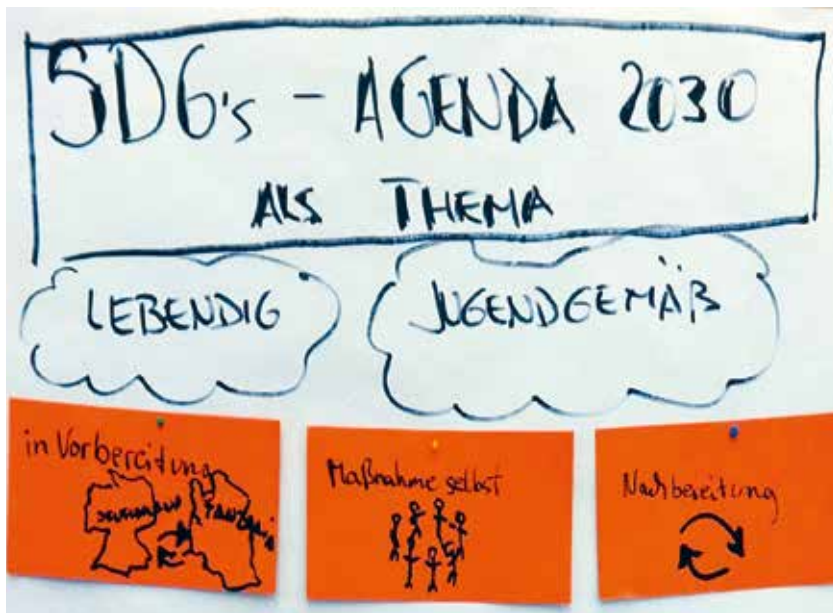 SDG's - AGENDA 2030
ALS THEMA
LEBENDIG
JUGENDGEMÄß
in Vorbereitung
DEUTSCHLAND
TANZANIA
Maßnahme selbst
Nachbereitung